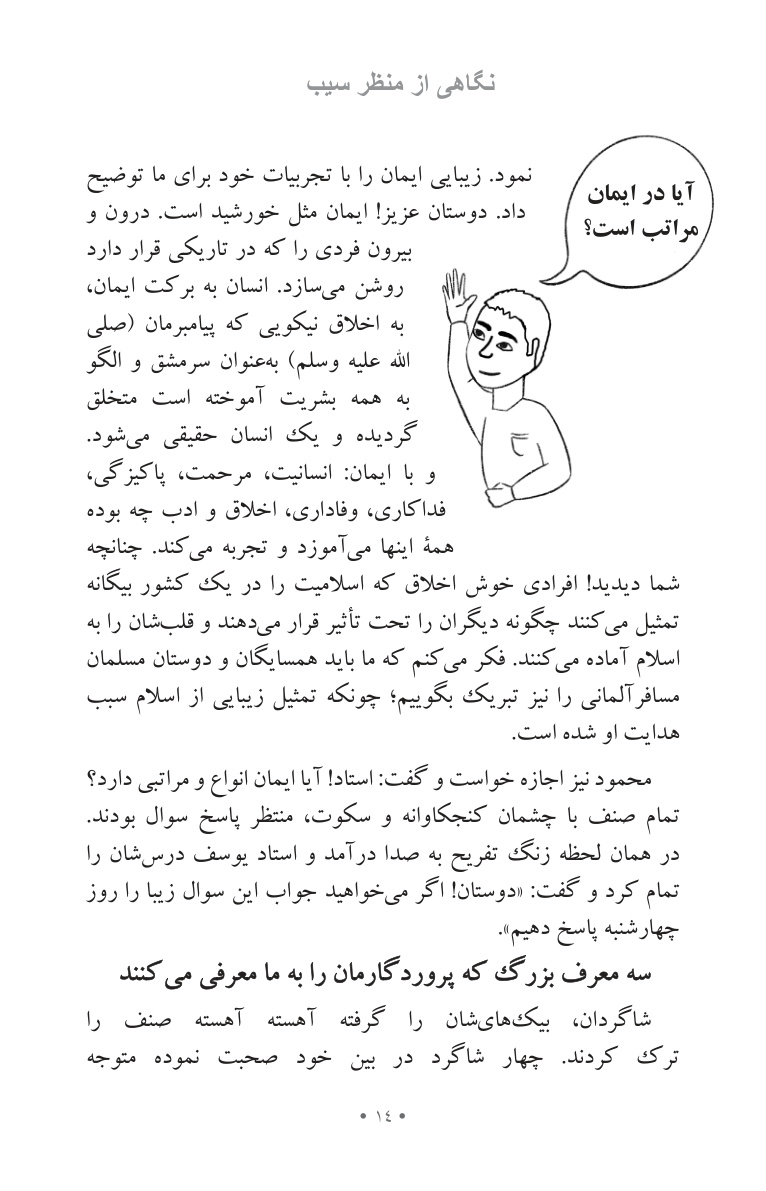 نگاهی از منظر سیب
آیا در ایمان
مراتب است؟
نمود. زیبایی ایمان را با تجربیات خود برای ما توضیح
داد. دوستان عزیز! ایمان مثل خورشید است. درون و
بیرون فردی را که در تاریکی قرار دارد
روشن می‌سازد. انسان به برکت ایمان،
به اخلاق نیکویی که پیامبرمان (صلی
الله علیه وسلم) به‌عنوان سرمشق و الگو
به همه بشریت آموخته است متخلق
گردیده و یک انسان حقیقی می‌شود.
و با ایمان: انسانیت، مرحمت، پاکیزگی،
فداکاری، وفاداری، اخلاق و ادب چه بوده
همهٔ اینها می‌آموزد و تجربه می‌کند. چنانچه
شما دیدید! افرادی خوش اخلاق که اسلامیت را در یک کشور بیگانه
تمثیل می‌کنند چگونه دیگران را تحت تأثیر قرار می‌دهند و قلب‌شان را به
اسلام آماده می‌کنند. فکر می‌کنم که ما باید همسایگان و دوستان مسلمان
مسافرآلمانی را نیز تبریک بگوییم؛ چونکه تمثیل زیبایی از اسلام سبب
هدایت او شده است.
محمود نیز اجازه خواست و گفت: استاد! آیا ایمان انواع و مراتبی دارد؟
تمام صنف با چشمان کنجکاوانه و سکوت، منتظر پاسخ سوال بودند.
در همان لحظه زنگ تفریح به صدا درآمد و استاد یوسف درس‌شان را
تمام کرد و گفت: «دوستان! اگر می‌خواهید جواب این سوال زیبا را روز
چهارشنبه پاسخ دهیم».
سه معرف بزرگ که پروردگارمان را به ما معرفی می‌کنند
شاگردان، بیک‌های‌شان را گرفته آهسته آهسته صنف را
ترک کردند. چهار شاگرد در بین خود صحبت نموده متوجه
• ١٤ •